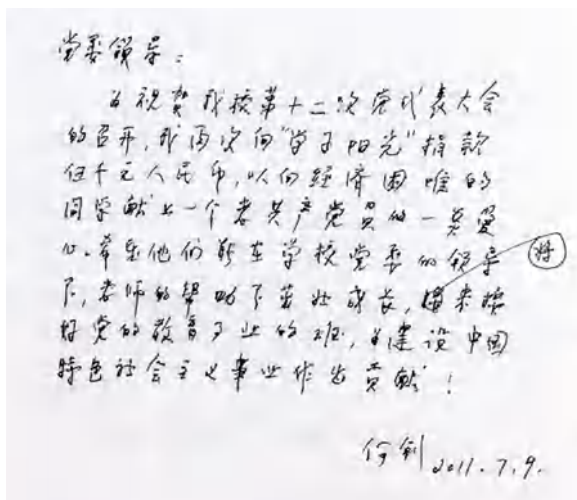 党委领导：
为祝贺我校第十二次党代表大会
的召开，我再次向“学子阳光”捐款
伍千元人民币，以向经济困难的
同学献上一个老共产党员的一点爱
心。希望他们能在学校党委的领导
下，老师的帮助下茁壮成长，将来接
好党的教育事业的班，为建设中国
特色社会主义事业作出贡献！
好
何钊 2011.7.9.